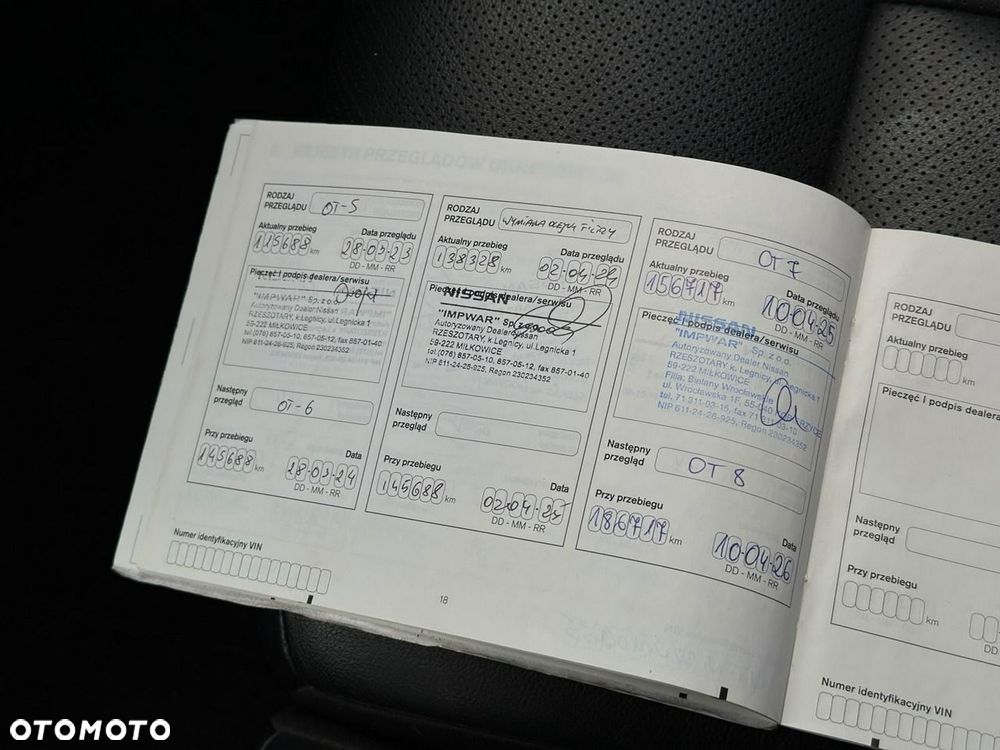 RODZAJ
PRZEGLĄDU OT-5
Aktualny przebieg Data przeglądu
115688 km 28-03-23
DD - MM - RR
Pieczęć i podpis dealera/serwisu
"IMPWAR" Sp. z o.o.
Autoryzowany Dealer Nissan
RZESZOTARY, k.Legnicy, ul.Legnicka 1
59-222 MIŁKOWICE
tel.(076) 857-05-10, 857-05-12, fax 857-01-40
NIP 611-24-26-925, Regon 230234352
Następny
przegląd OT-6
Przy przebiegu Data
145688 km 28-03-24
DD - MM - RR
RODZAJ
PRZEGLĄDU WYMIANA OLEJU FILTRY
Aktualny przebieg Data przeglądu
138328 km 02-04-24
DD - MM - RR
Pieczęć i podpis dealera/serwisu
NISSAN
"IMPWAR" Sp. z o.o.
Autoryzowany Dealer Nissan
RZESZOTARY, k.Legnicy, ul.Legnicka 1
59-222 MIŁKOWICE
tel.(076) 857-05-10, 857-05-12, fax 857-01-40
NIP 611-24-26-925, Regon 230234352
Następny
przegląd
Przy przebiegu Data
145688 km 02-04-25
DD - MM - RR
RODZAJ
PRZEGLĄDU OT 7
Aktualny przebieg Data przeglądu
156717 km 10-04-25
DD - MM - RR
Pieczęć i podpis dealera/serwisu
NISSAN
"IMPWAR" Sp. z o.o.
Autoryzowany Dealer Nissan
RZESZOTARY, k. Legnicy, ul. Legnicka 1
59-222 MIŁKOWICE
Filia: Bielany Wrocławskie
ul. Wrocławska 1F, 55-040
tel. 71 311-03-15, fax 71 311-03-10
NIP 611-24-26-925, Regon 230234352
Następny
przegląd OT 8
Przy przebiegu Data
186717 km 10-04-26
DD - MM - RR
Numer identyfikacyjny VIN
18
RODZAJ
PRZEGLĄDU
Aktualny przebieg
km
Pieczęć i podpis dealera
Następny
przegląd
Przy przebiegu
km
DD
Numer identyfikacyjny VIN
OTOMOTO